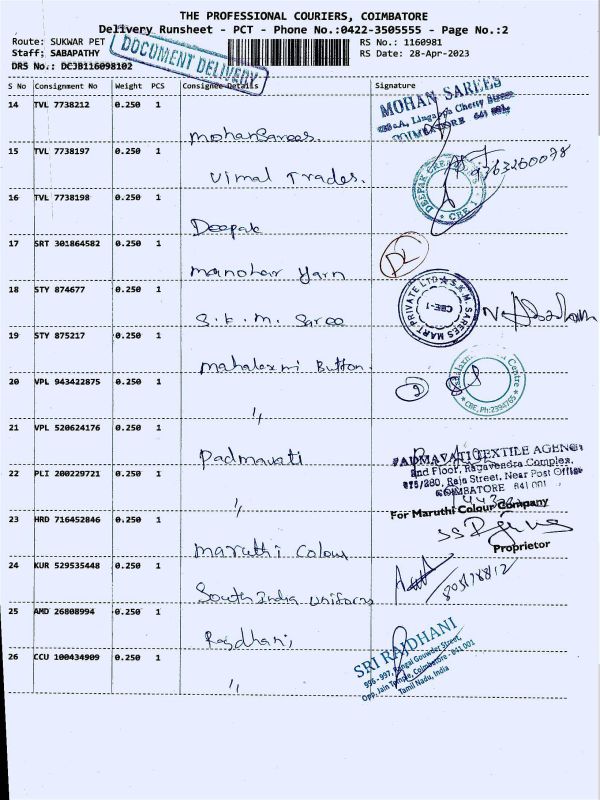 THE PROFESSIONAL COURIERS, COIMBATORE
Delivery Runsheet - PCT - Phone No.:0422-3505555 - Page No.:2
Route: SUKWAR PET
RS No.: 1160981
Staff; SABAPATHY
RS Date: 28-Apr-2023
DRS No.: DCJB116098102
DOCUMENT DELIVERY
S No Consignment No Weight PCS Consignee Details Signature
14 TVL 7738212 0.250 1
Mohan Sarees.
MOHAN SAREES
COIMBATORE 641 001.
15 TVL 7738197 0.250 1
Vimal Trades.
9363260078
16 TVL 7738198 0.250 1
Deepak
CBE-1
17 SRT 301864582 0.250 1
Manohar Yarn
18 STY 874677 0.250 1
S.K.M. Saree
S.K.M. SAREES MART PRIVATE LTD
CBE-1
19 STY 875217 0.250 1
Mahalaxmi Button.
20 VPL 943422875 0.250 1
"
CBE, Ph:2394765
21 VPL 520624176 0.250 1
Padmavati
PADMAVATI TEXTILE AGENCY
2nd Floor, Ragavendra Complex,
Raja Street, Near Post Office
COIMBATORE 641 001
22 PLI 200229721 0.250 1
"
For Maruthi Colour Company
23 HRD 716452846 0.250 1
Maruthi Colour
Proprietor
24 KUR 529535448 0.250 1
South India Uniforms
25 AMD 26808994 0.250 1
Rajdhani
26 CCU 100434909 0.250 1
"
SRI RAJDHANI
996 - 997, Rangai Gowder Street,
Opp. Jain Temple, Coimbatore - 641 001
Tamil Nadu, India